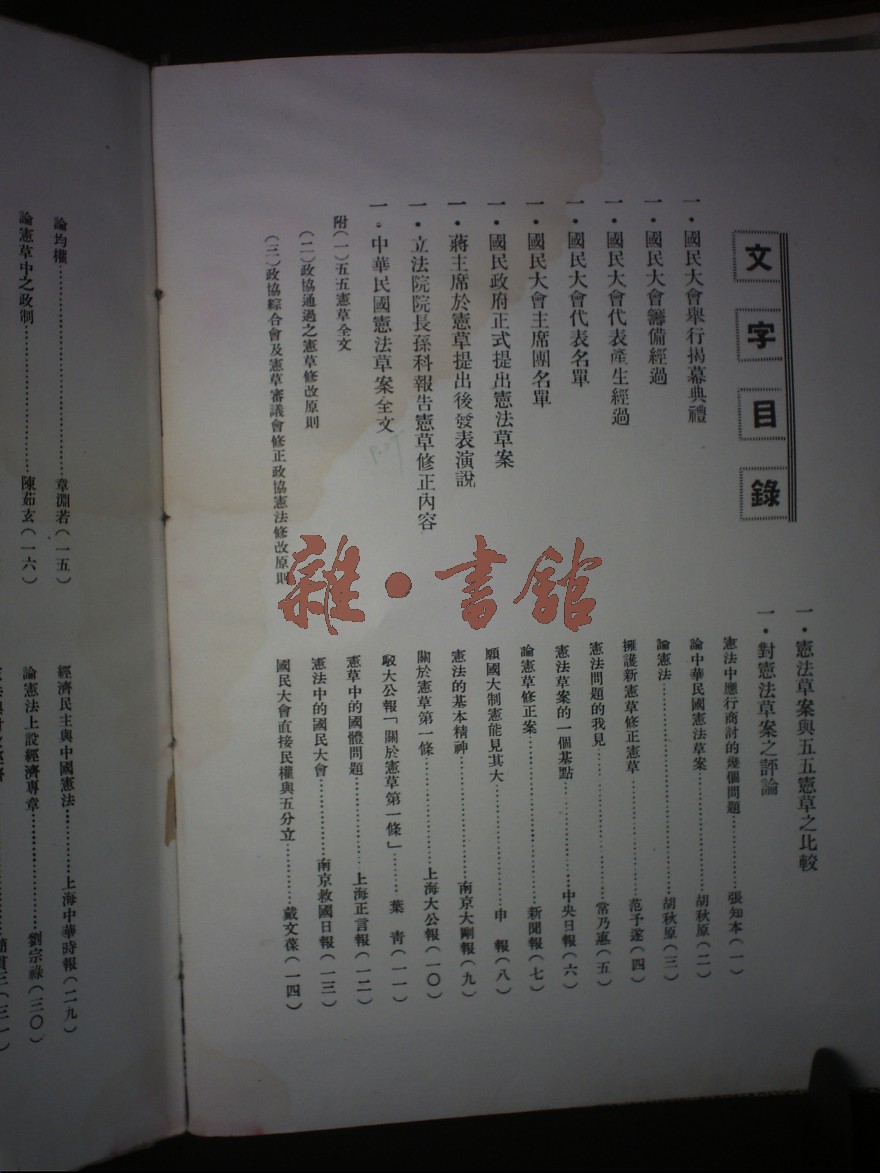 文字目錄
一・國民大會舉行揭幕典禮
一・國民大會籌備經過
一・國民大會代表產生經過
一・國民大會代表名單
一・國民大會主席團名單
一・國民政府正式提出憲法草案
一・蔣主席於憲草提出後發表演說
一・立法院院長孫科報告憲草修正內容
一・中華民國憲法草案全文
附(一)五五憲草全文
(二)政協通過之憲草修改原則
(三)政協綜合會及憲草審議會修正政協憲法修改原則
一・憲法草案與五五憲草之比較
一・對憲法草案之評論
憲法中應行商討的幾個問題…………張知本(一)
論中華民國憲法草案…………胡秋原(二)
論憲法…………胡秋原(三)
擁護新憲草修正憲草…………范予遂(四)
憲法問題的我見…………常乃惪(五)
憲法草案的一個基點…………中央日報(六)
論憲草修正案…………新聞報(七)
願國大制憲能見其大…………申 報(八)
憲法的基本精神…………南京大剛報(九)
關於憲草第一條…………上海大公報(一〇)
駁大公報「關於憲草第一條」…………葉 青(一一)
憲草中的國體問題…………上海正言報(一二)
憲法中的國民大會…………南京救國日報(一三)
國民大會直接民權與五分立…………戴文葆(一四)
論均權…………章淵若(一五)
論憲草中之政制…………陳茹玄(一六)
經濟民主與中國憲法…………上海中華時報(二九)
論憲法上設經濟專章…………劉宗祿(三〇)
雜・書館